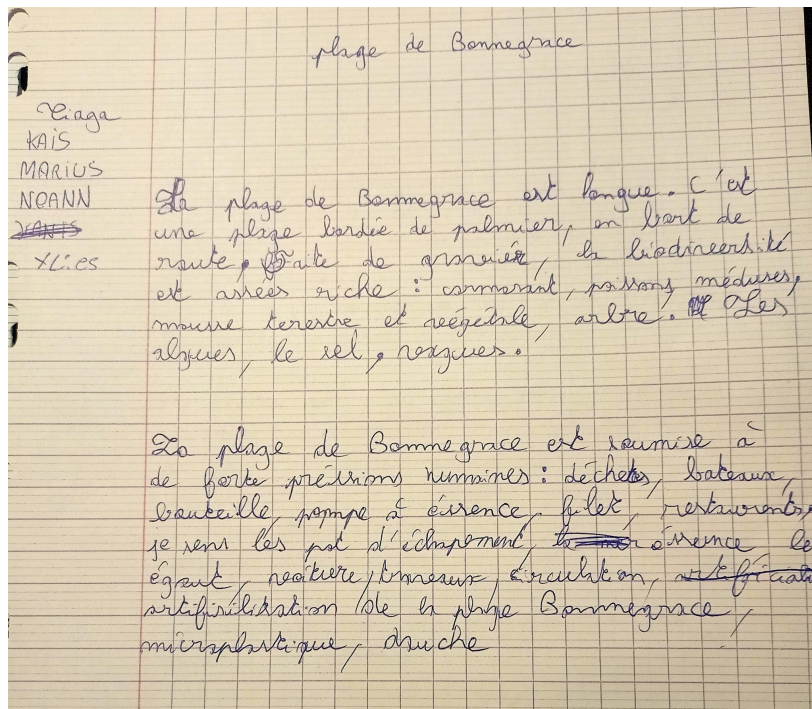 plage de Bonnegrace
Tiaga
KAIS
MARIUS
NOANN
YANIS
XLies
La plage de Bonnegrace est longue. C'est
une plage bordée de palmier, en bort de
route, faite de gravier, la biodiversité
est assées riche : cormorant, poissons, méduses,
mousse terestre et végétale, arbre. Les
algues, le sel, vagues.
La plage de Bonnegrace est soumise à
de forte préssions humaines : déchets, bateaux,
bouteille, pompe à éssence, filet, restaurents,
je sens les pot d'échapement, éssence le
égout, voiture, circulation,
de la plage Bonnegrace,
microplastique, douche